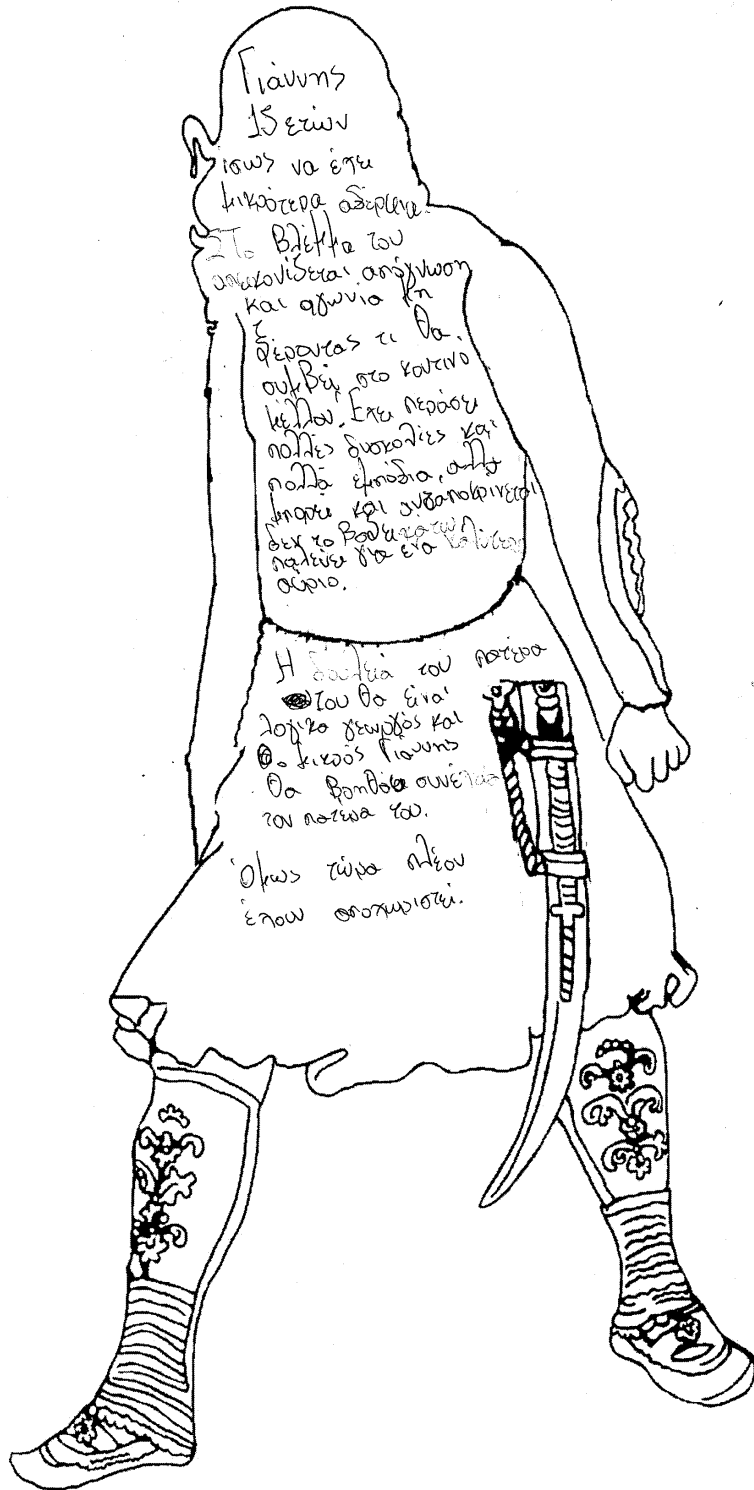 Γιάννης
15 ετών
ισως να έχει
μικρότερα αδέρφια.
Στο βλέμμα του
απεικονίδεται απόγνωση
και αγωνία μη
ξέροντας τι θα
συμβεί στο κοντινο
μέλλον. Εχει περάσει
πολλές δυσκολίες και
πολλά εμπόδια, αλλα
μπορει και ανταποκρινεται
δεν το βαθει κατω
παλεύει για ενα καλύτερο
αύριο.
Η δουλειά του πατέρα
του θα είναι
λογικα γεωργός και
ο μικρός Γιαννης
θα βοηθάει συνέχεια
τον πατερα του.
Όμως τώρα πλέον
έχουν αποχωριστεί.